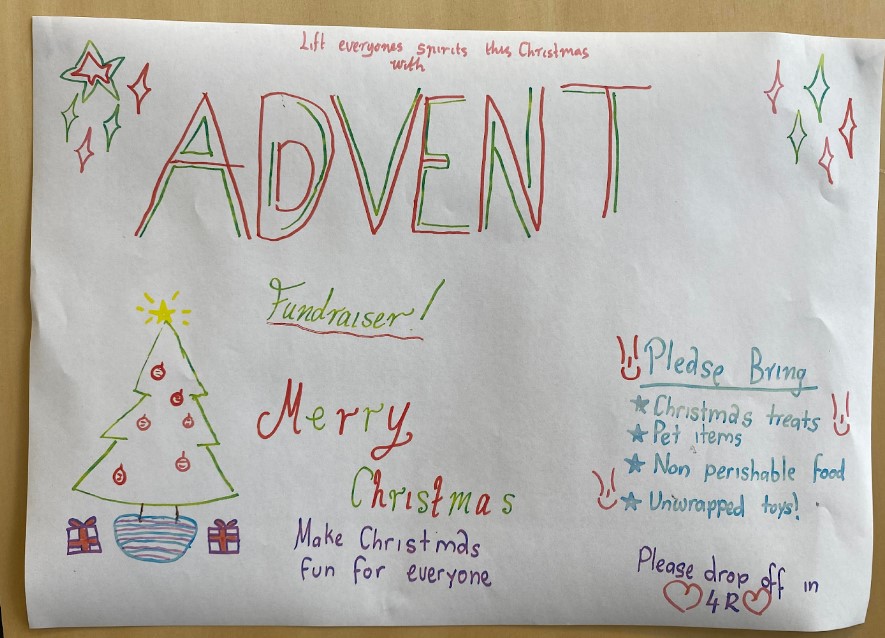 Lift everyones spirits this Christmas
with
ADVENT
Fundraiser!
Merry
Christmas
Make Christmas
fun for everyone
Please Bring
Christmas treats
Pet items
Non perishable food
Unwrapped toys!
Please drop off in
4R